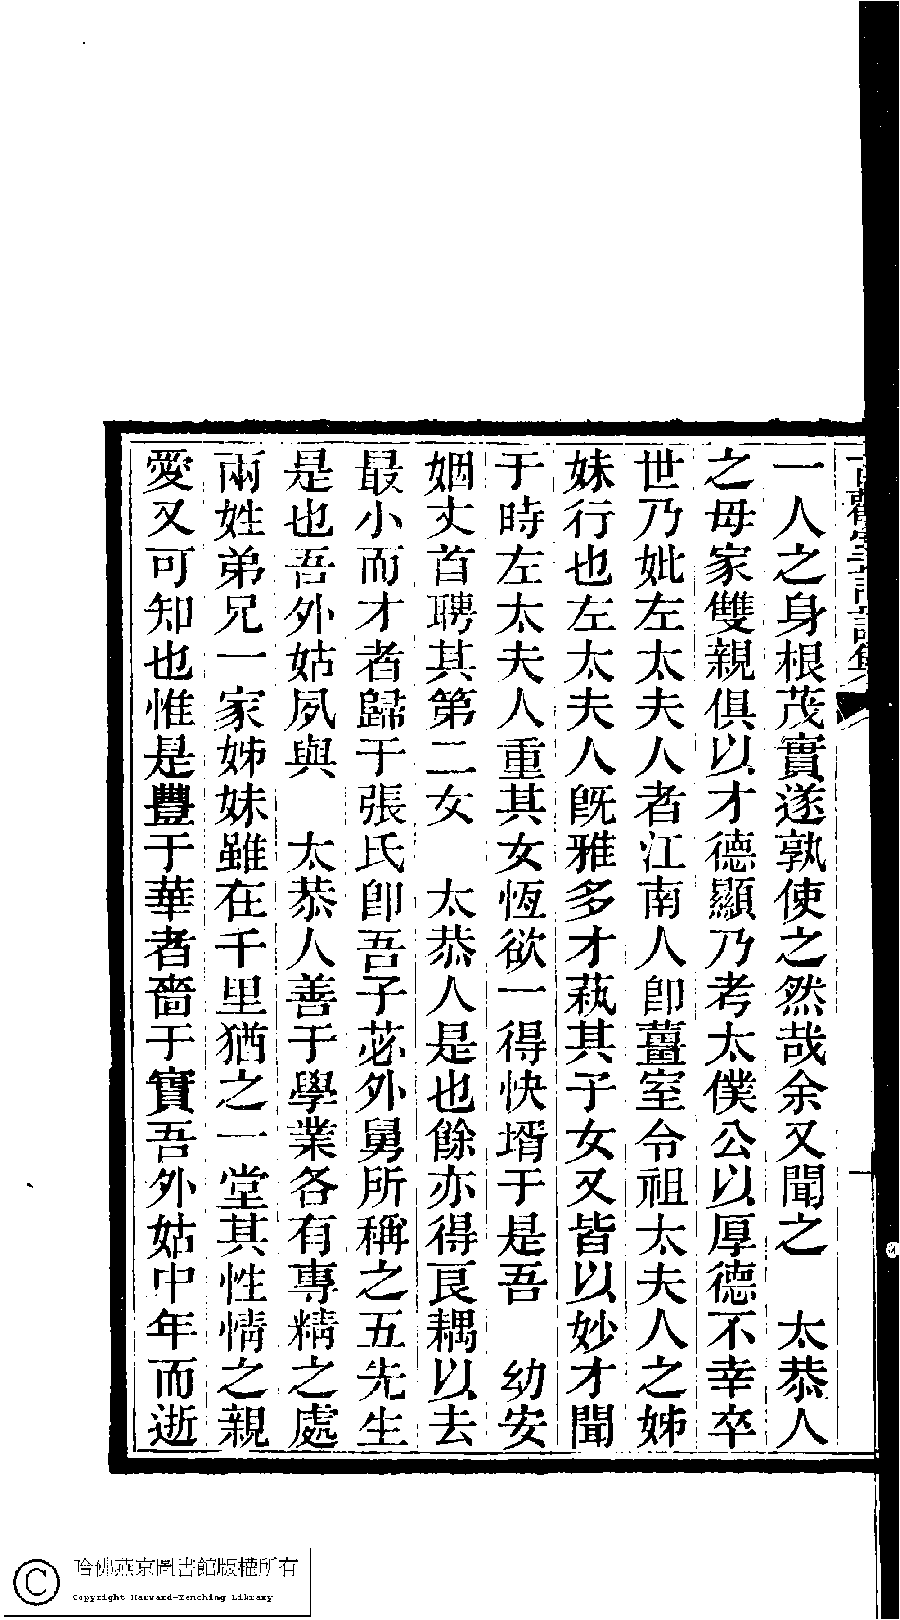 一人之身根茂實遂孰使之然哉余又聞之　太恭人
之母家雙親俱以才德顯乃考太僕公以厚德不幸卒
世乃妣左太夫人者江南人卽薑室令祖太夫人之姊
妹行也左太夫人旣雅多才蓺其子女又皆以妙才聞
于時左太夫人重其女恆欲一得快壻于是吾　幼安
姻丈首聘其第二女　太恭人是也餘亦得良耦以去
最小而才者歸于張氏卽吾子苾外舅所稱之五先生
是也吾外姑夙與　太恭人善于學業各有專精之處
兩姓弟兄一家姊妹雖在千里猶之一堂其性情之親
愛又可知也惟是豐于華者嗇于實吾外姑中年而逝
哈佛燕京圖書館版權所有
Copyright Harvard-Yenching Library